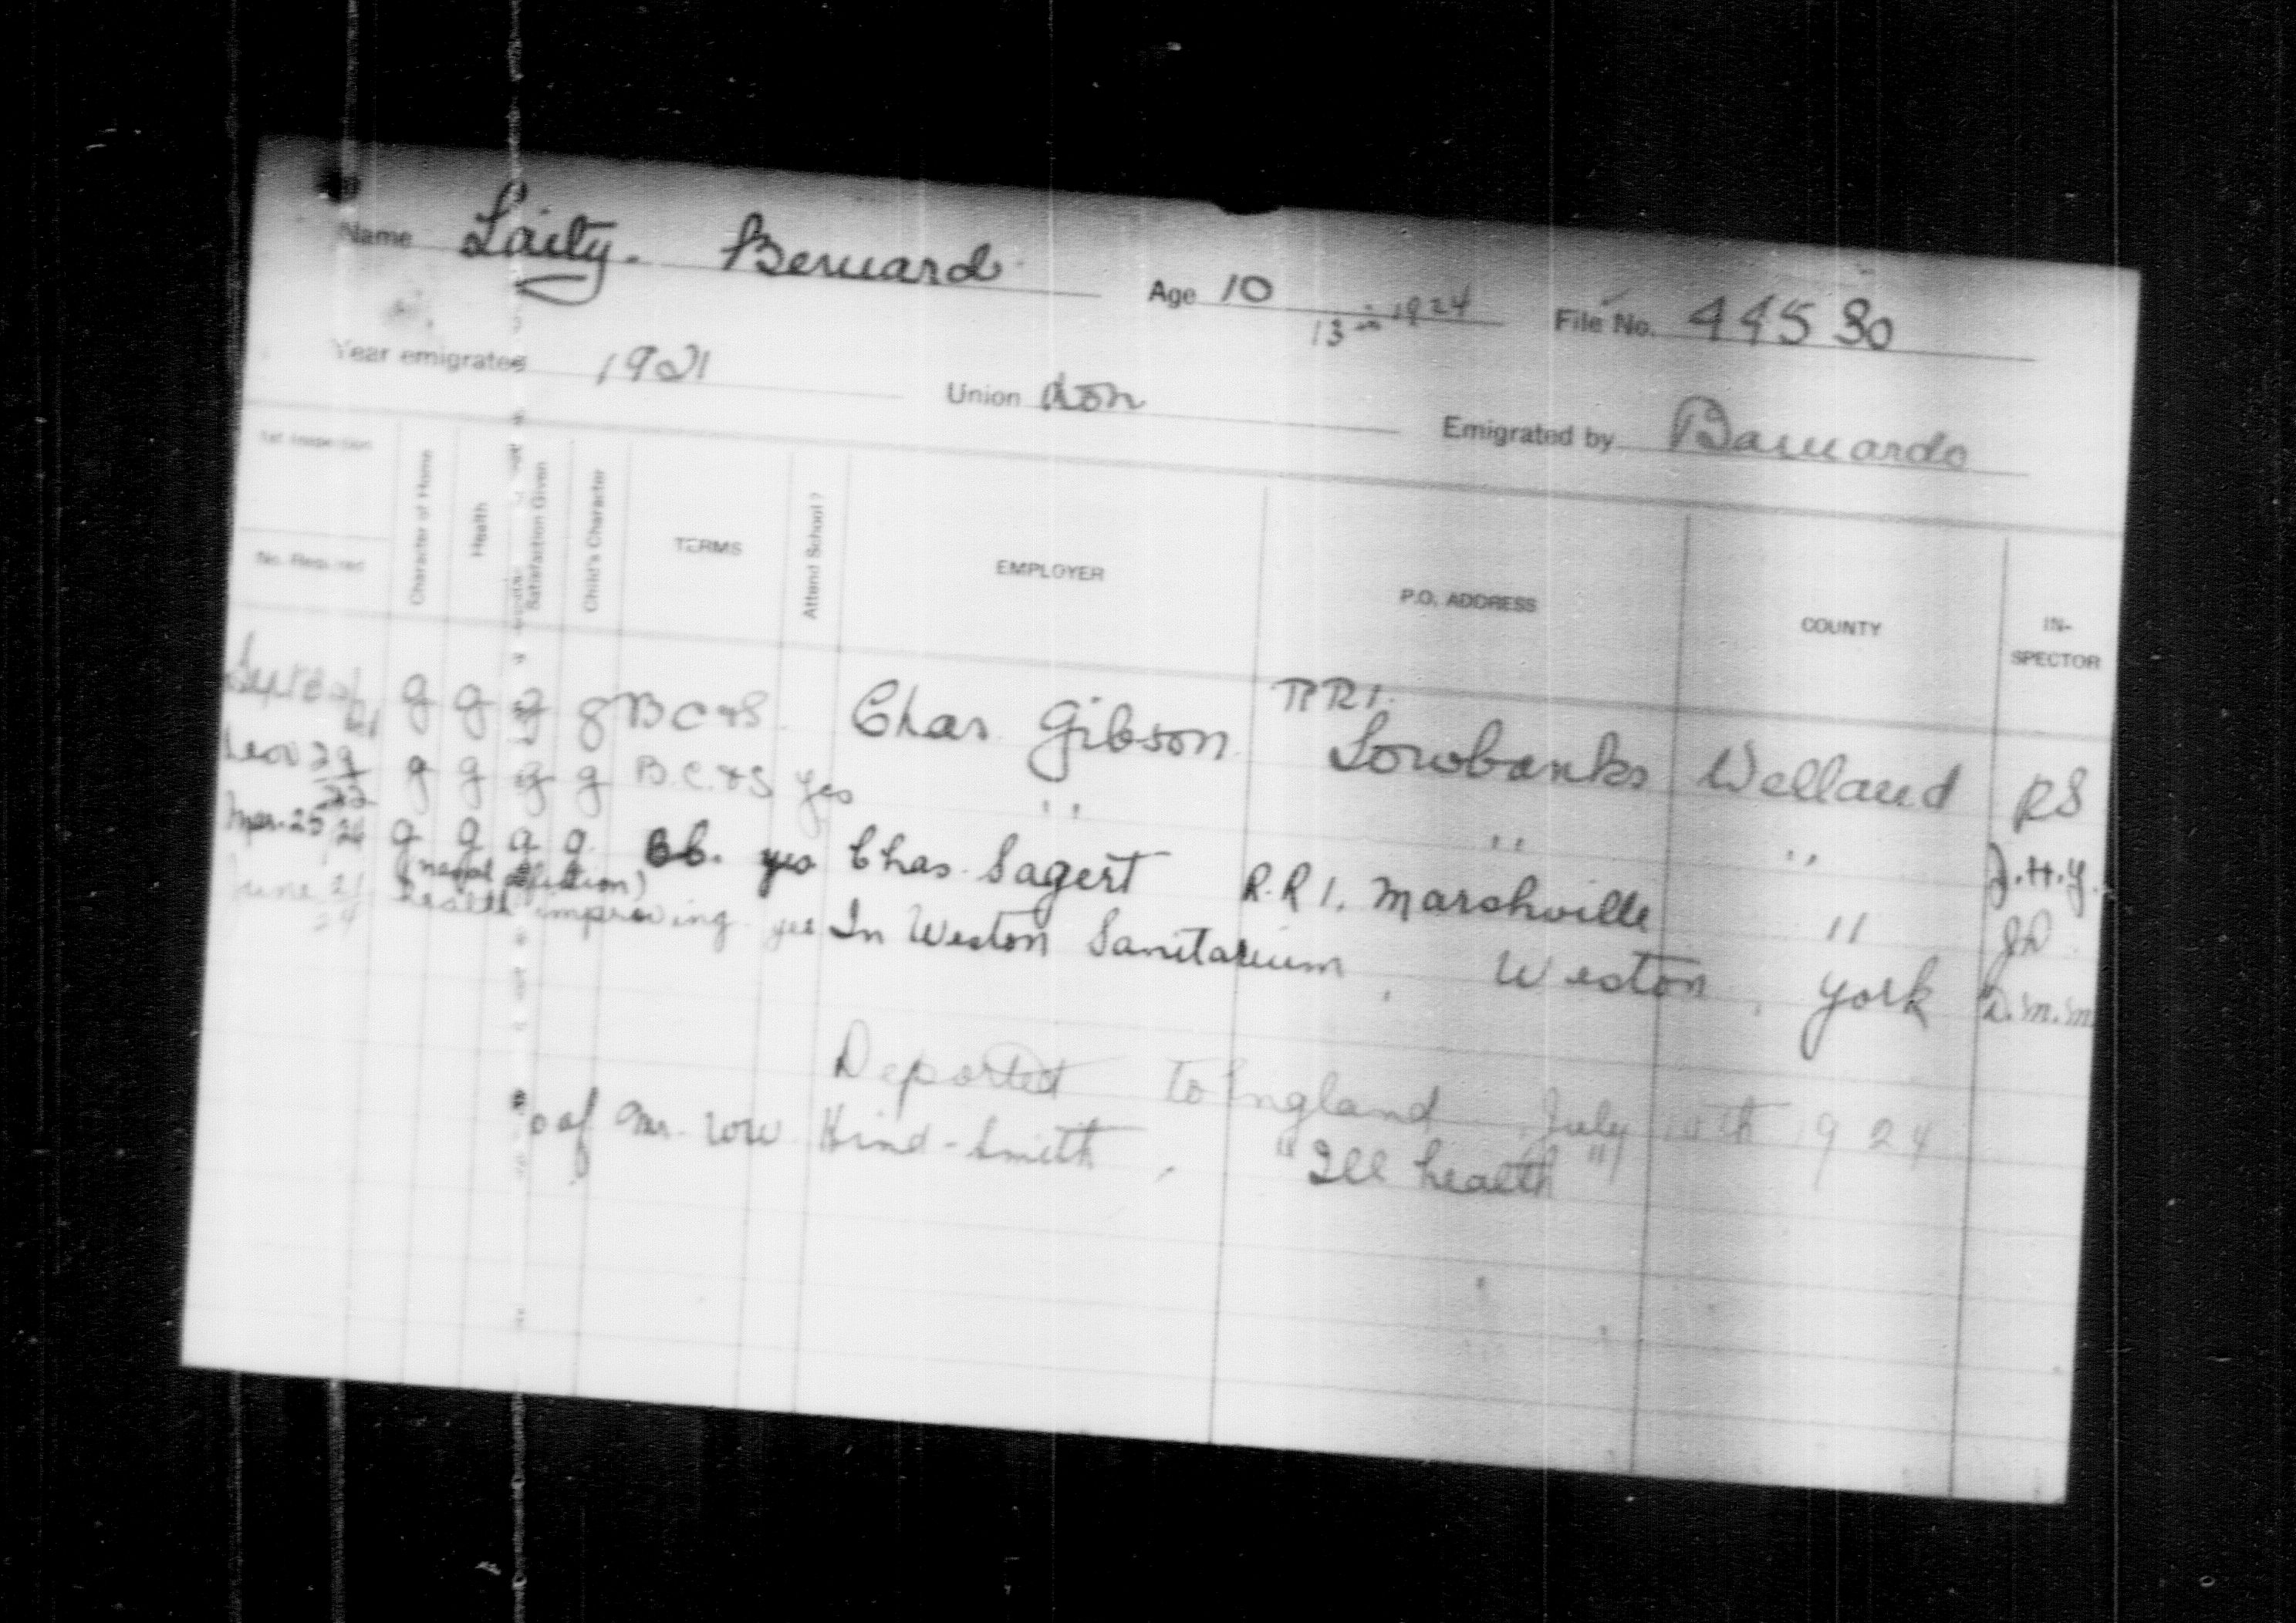 Name Laity. Bernard Age 10 File No. 44530
13 in 1924
Year emigrated 1921 Union Lon Emigrated by Barnardo
1st Inspection
No. Required
Character of Home
Health
Satisfaction Given
Child's Character
TERMS
Attend School?
EMPLOYER
P.O. ADDRESS
COUNTY
IN-
SPECTOR
Sept 21 g g g g B C & S. Chas Gibson RR1. Lowbanks Welland RS
Nov 29 22 g g g g B.C. & S yes " " " J.H.Y.
Mar. 25 24 g g g g. BC. yes Chas. Sagert R.R 1. Marshville "
June 21 24 (nasal affection) Health improving yes In Weston Sanitarium, Weston, York D.M.M
Deported to England July 1924
of Mr. Hind-Smith, "Ill health"